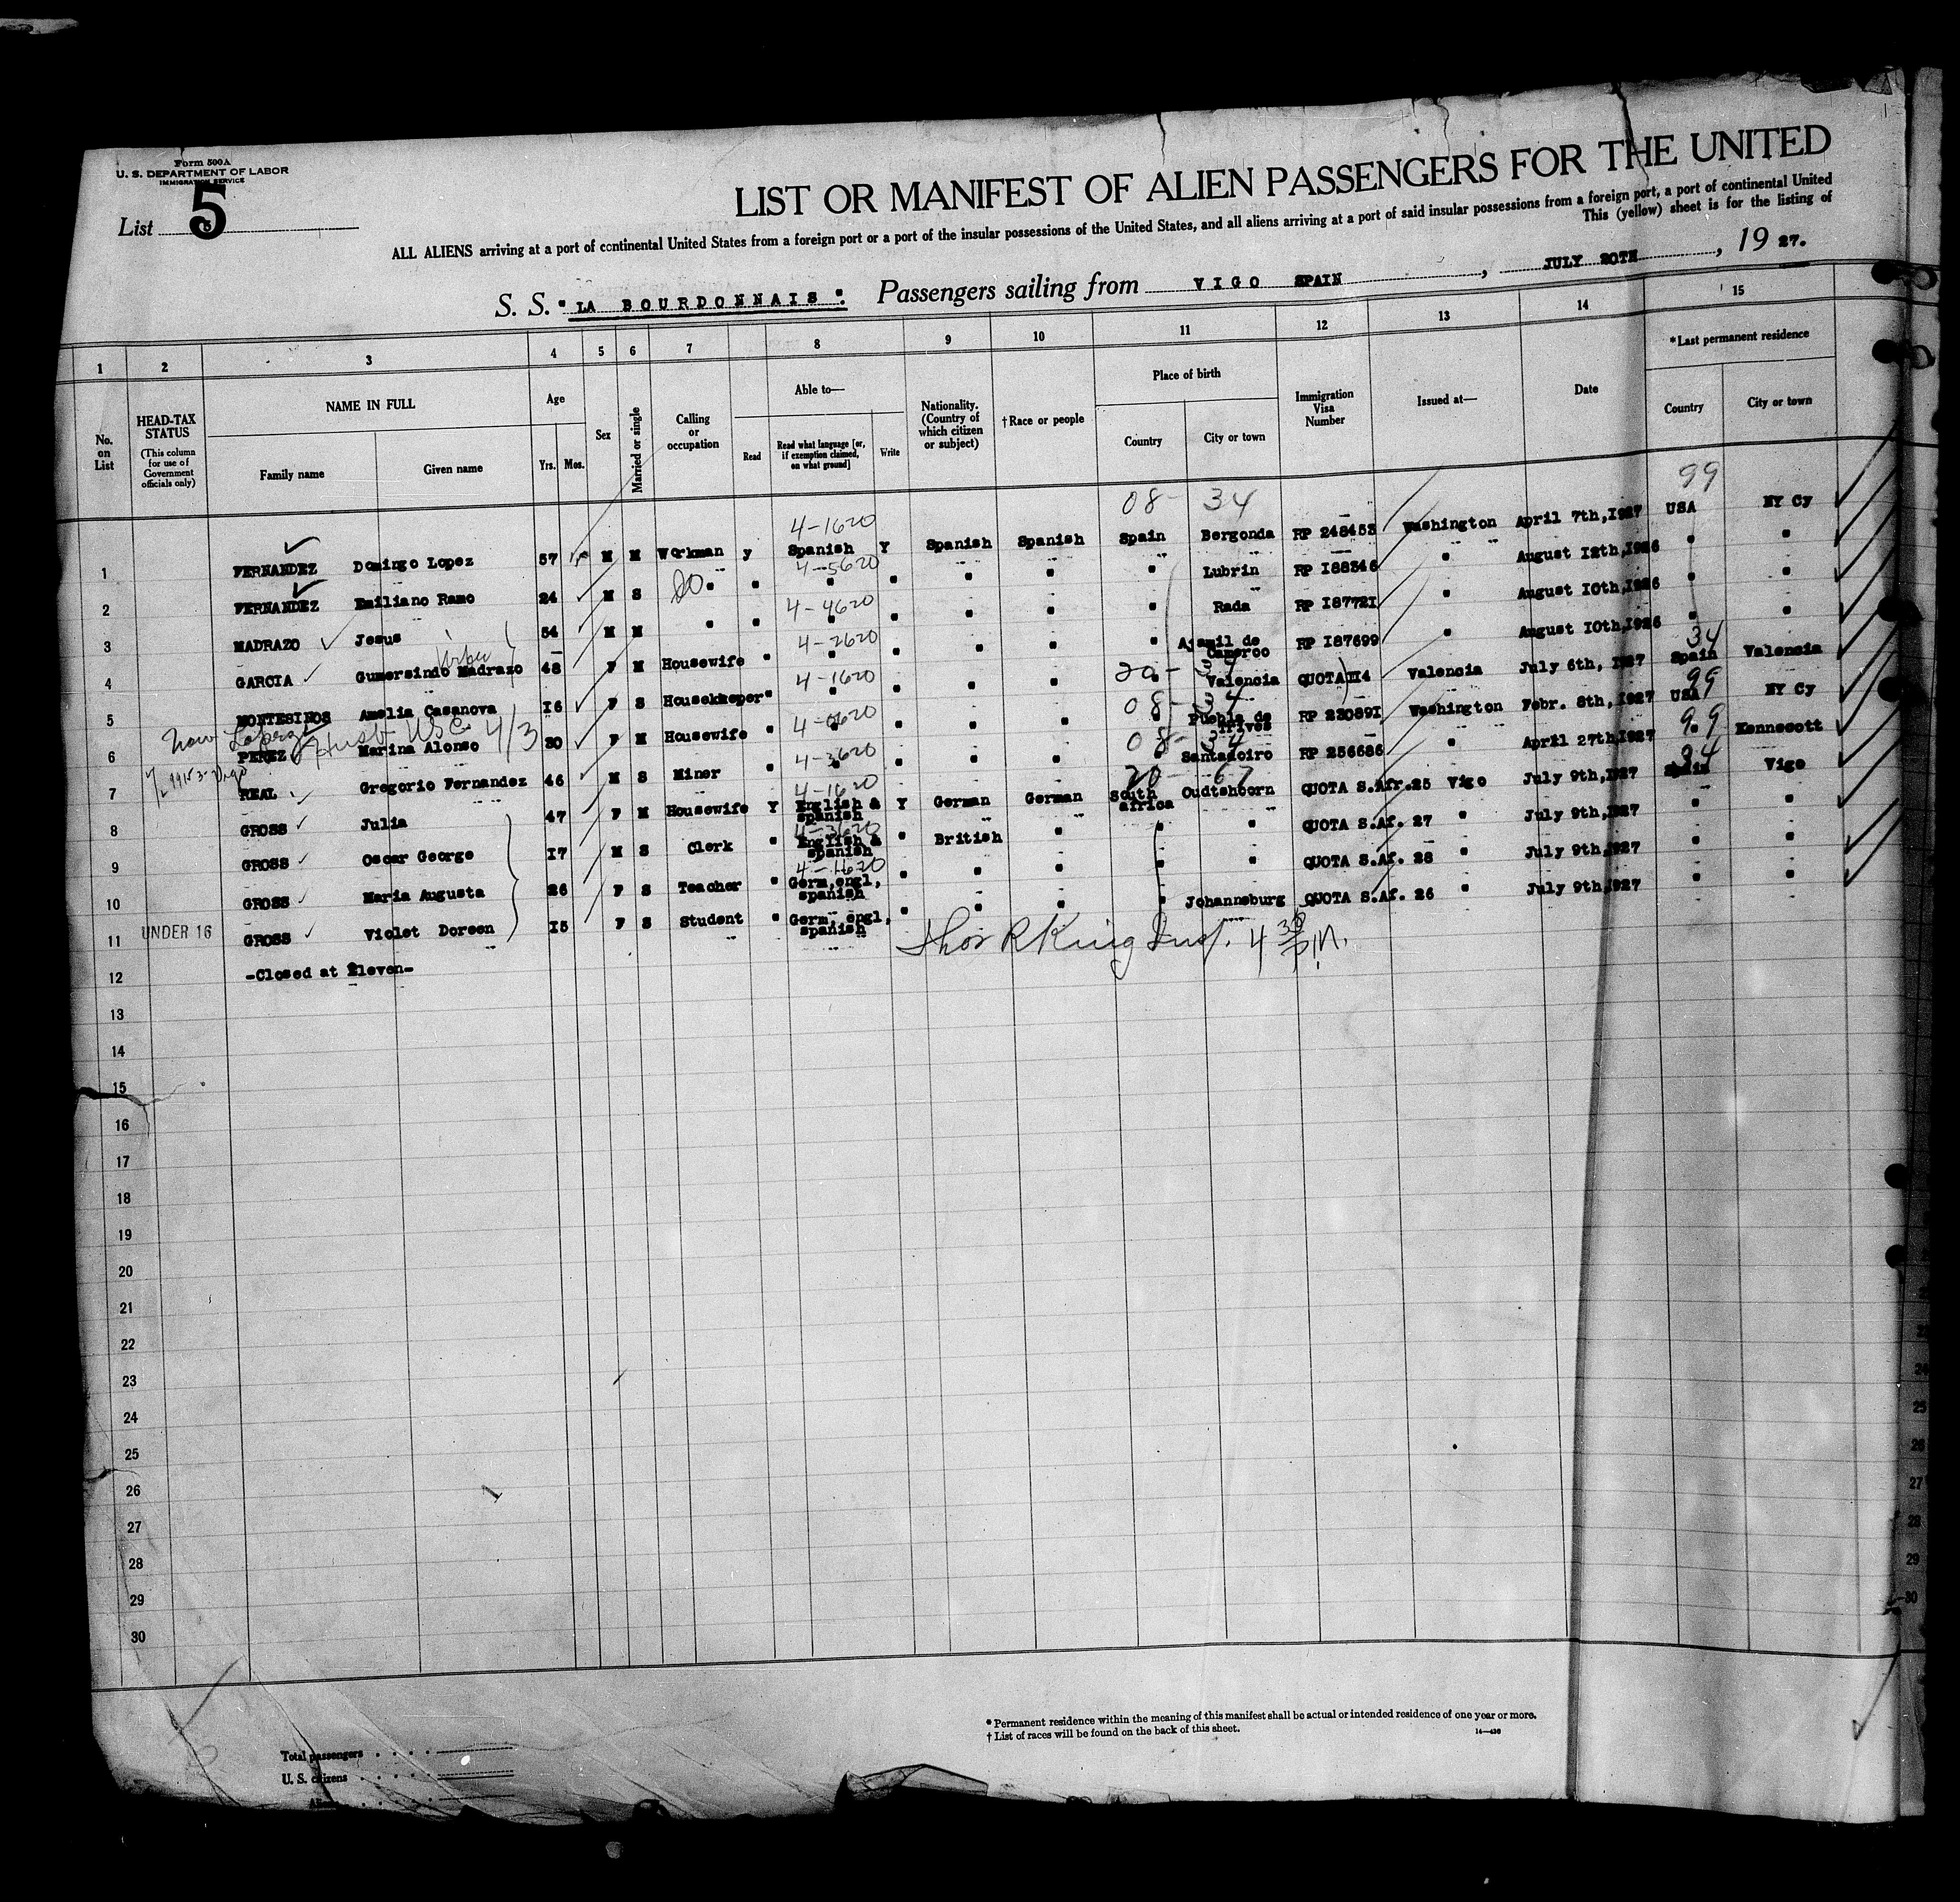 Form 500A
U. S. DEPARTMENT OF LABOR
IMMIGRATION SERVICE
List 5
LIST OR MANIFEST OF ALIEN PASSENGERS FOR THE UNITED
ALL ALIENS arriving at a port of continental United States from a foreign port or a port of the insular possessions of the United States, and all aliens arriving at a port of said insular possessions from a foreign port, a port of continental United
This (yellow) sheet is for the listing of
S. S. "LA BOURDONNAIS". Passengers sailing from VIGO SPAIN, JULY 20TH, 1927.
1 2 3 4 5 6 7 8 9 10 11 12 13 14 15
No. on List
HEAD-TAX STATUS (This column for use of Government officials only)
NAME IN FULL Family name Given name
Age Yrs. Mos.
Sex
Married or single
Calling or occupation
Able to— Read Read what language [or, if exemption claimed, on what ground] Write
Nationality. (Country of which citizen or subject)
†Race or people
Place of birth Country City or town
Immigration Visa Number
Issued at—
Date
*Last permanent residence Country City or town
4-1620 08- 34 99
1 FERNANDEZ Domingo Lopez 57 M M Workman y Spanish Y Spanish Spanish Spain Bergonda RP 248453 Washington April 7th,1927 USA NY Cy
4-5620
2 FERNANDEZ Emiliano Ramo 24 M S " " " " " " " Lubrin RP 188346 " August 12th,1926 " "
4-4620
3 MADRAZO Jesus 54 M M " " " " " " " Rada RP 187721 " August 10th,1926 " "
4-2620
4 GARCIA Gumersindo Madrazo 48 F M Housewife " " " " " " Ajamil de Cameroo RP 187699 " August 10th,1926 " "
4-1620 20- 34 34
5 MONTESINOS Amelia Casanova 16 F S Housekkeper " " " " " " Valencia QUOTA 114 Valencia July 6th, 1927 Spain Valencia
Husb USC 4/3
4-0620 08- 34 99
6 PEREZ Marina Alonso 30 F M Housewife " " " " " " Puebla de Trives RP 230891 Washington Febr. 8th,1927 USA NY Cy
4-3620 08- 34 99
7 REAL Gregorio Fernandez 46 M S Miner " " " " " " Santadoiro RP 256686 " April 27th,1927 " Kennecott
4-1620 20- 67 34
8 GROSS Julia 47 F M Housewife Y English & spanish Y German German South africa Oudtshoorn QUOTA S.Afr.25 Vigo July 9th,1927 Spain Vigo
4-3620
9 GROSS Oscar George 17 M S Clerk " English & spanish " British " " " QUOTA S.Af. 27 " July 9th,1927 " "
4-1620
10 GROSS Maria Augusta 26 F S Teacher " Germ,engl, spanish " " " " " QUOTA S.Af. 28 " July 9th,1927 " "
11 UNDER 16 GROSS Violet Doreen 15 F S Student " Germ, engl, spanish " " " " Johannsburg QUOTA S.Af. 26 " July 9th,1927 " "
Thos R King Insp. 4 30 P.M.
12 -Closed at Eleven-
13
14
15
16
17
18
19
20
21
22
23
24
25
26
27
28
29
30
* Permanent residence within the meaning of this manifest shall be actual or intended residence of one year or more.
† List of races will be found on the back of this sheet.
14—430
Total passengers
U. S. citizens